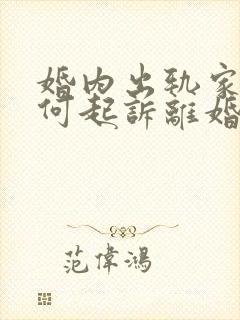 婚内出轨家
何起訴離婚
范偉鴻